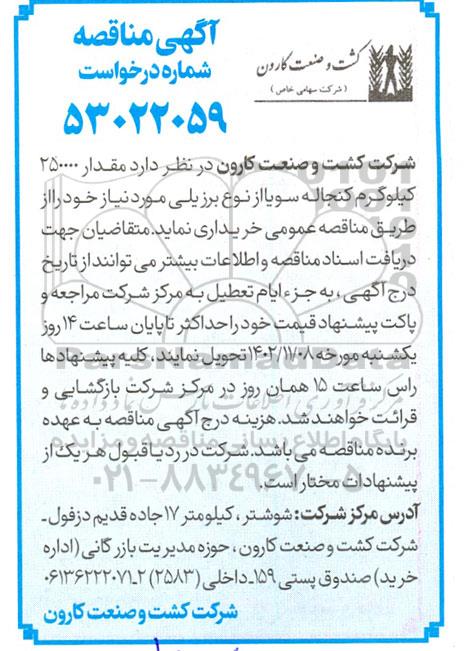 آگهی مناقصه
شماره درخواست
۵۳۰۲۲۰۵۹
کشت و صنعت کارون
( شرکت سهامی خاص )
شرکت کشت و صنعت کارون در نظر دارد مقدار ۲۵۰۰۰۰
کیلوگرم کنجاله سویا از نوع برزیلی مورد نیاز خود را از
طریق مناقصه عمومی خریداری نماید. متقاضیان جهت
دریافت اسناد مناقصه و اطلاعات بیشتر می توانند از تاریخ
درج آگهی ، به جزء ایام تعطیل به مرکز شرکت مراجعه و
پاکت پیشنهاد قیمت خود را حداکثر تا پایان ساعت ۱۴ روز
یکشنبه مورخه ۱۴۰۲/۱۱/۰۸ تحویل نمایند ، کلیه پیشنهادها
راس ساعت ۱۵ همان روز در مرکز شرکت بازگشایی و
قرائت خواهند شد. هزینه درج آگهی مناقصه به عهده
برنده مناقصه می باشد. شرکت در رد یا قبول هر یک از
پیشنهادات مختار است.
آدرس مرکز شرکت: شوشتر ، کیلومتر ۱۷ جاده قدیم دزفول-
شرکت کشت و صنعت کارون ، حوزه مدیریت بازرگانی (اداره
خرید) صندوق پستی ۱۵۹-داخلی (۲۵۸۳) ۲-۰۶۱۳۶۲۲۲۰۷۱
شرکت کشت و صنعت کارون
ParsNamadData
پایگاه اطلاع رسانی مناقصه و مزایده
۰۲۱-۸۸۳۴۹۶۷۰-۵